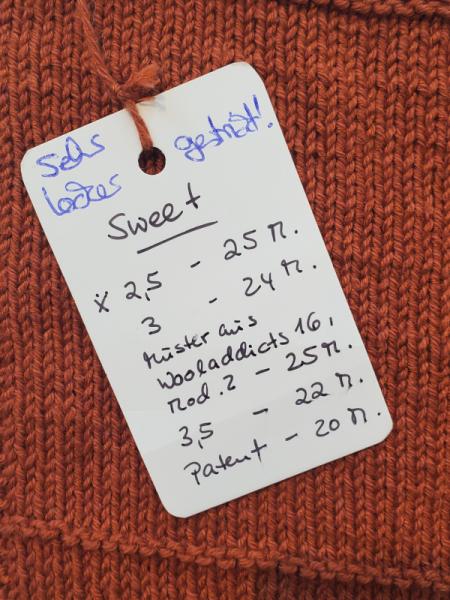 Sehr
lockes
gestrickt!
Sweet
x 2,5 - 25 M.
3 - 24 M.
Muster aus
Wooladdicts 16,
Mod. 2 - 25 M.
3,5 - 22 M.
Patent - 20 M.